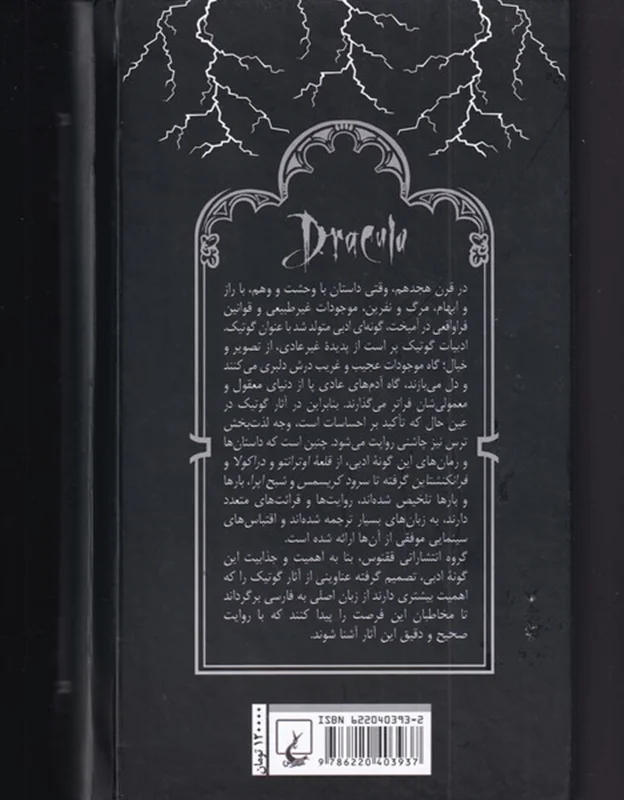 Dracula
در قرن هجدهم، وقتی داستان با وحشت و وهم، با راز
و ابهام، مرگ و نفرین، موجودات غیرطبیعی و قوانین
فراواقعی در آمیخت، گونه‌ای ادبی متولد شد با عنوان گوتیک.
ادبیات گوتیک پر است از پدیدهٔ غیرعادی، از تصویر و
خیال؛ گاه موجودات عجیب و غریب درش دلبری می‌کنند
و دل می‌بازند، گاه آدم‌های عادی پا از دنیای معقول و
معمولی‌شان فراتر می‌گذارند. بنابراین در آثار گوتیک در
عین حال که تأکید بر احساسات است، وجه لذت‌بخش
ترس نیز چاشنی روایت می‌شود. چنین است که داستان‌ها
و رمان‌های این گونهٔ ادبی، از قلعهٔ اوترانتو و دراکولا و
فرانکنشتاین گرفته تا سرود کریسمس و شبح اپرا، بارها
و بارها تلخیص شده‌اند، روایت‌ها و قرائت‌های متعدد
دارند، به زبان‌های بسیار ترجمه شده‌اند و اقتباس‌های
سینمایی موفقی از آن‌ها ارائه شده است.
گروه انتشاراتی ققنوس، بنا به اهمیت و جذابیت این
گونهٔ ادبی، تصمیم گرفته عناوینی از آثار گوتیک را که
اهمیت بیشتری دارند از زبان اصلی به فارسی برگرداند
تا مخاطبان این فرصت را پیدا کنند که با روایت
صحیح و دقیق این آثار آشنا شوند.
۱۲۰۰۰۰ تومان
ISBN 622040393-2
9 786220 403937